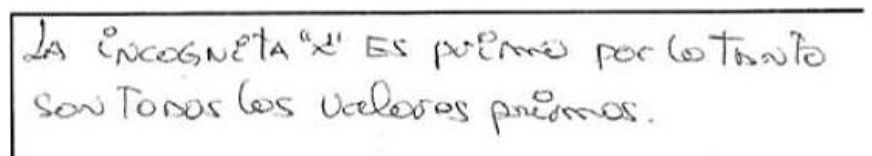 LA incognita "x" Es primo por lo Tanto
son Todos los valores primos.